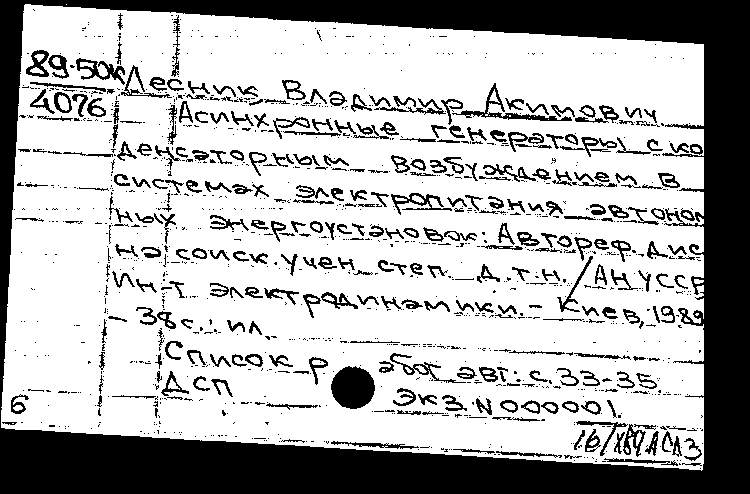 89-50к Лесник Владимир Акимович
4076 Асинхронные генераторы с ко
денсаторным возбуждением в
системах электропитания автоном
ных энергоустановок: Автореф. дис
на соиск. учен. степ. д.т.н. / АН УССР
Ин-т электродинамики. - Киев, 1989
- 38 с.: ил.
Список р абот авт.: с. 33-35.
ДСП Экз. N 000001.
6